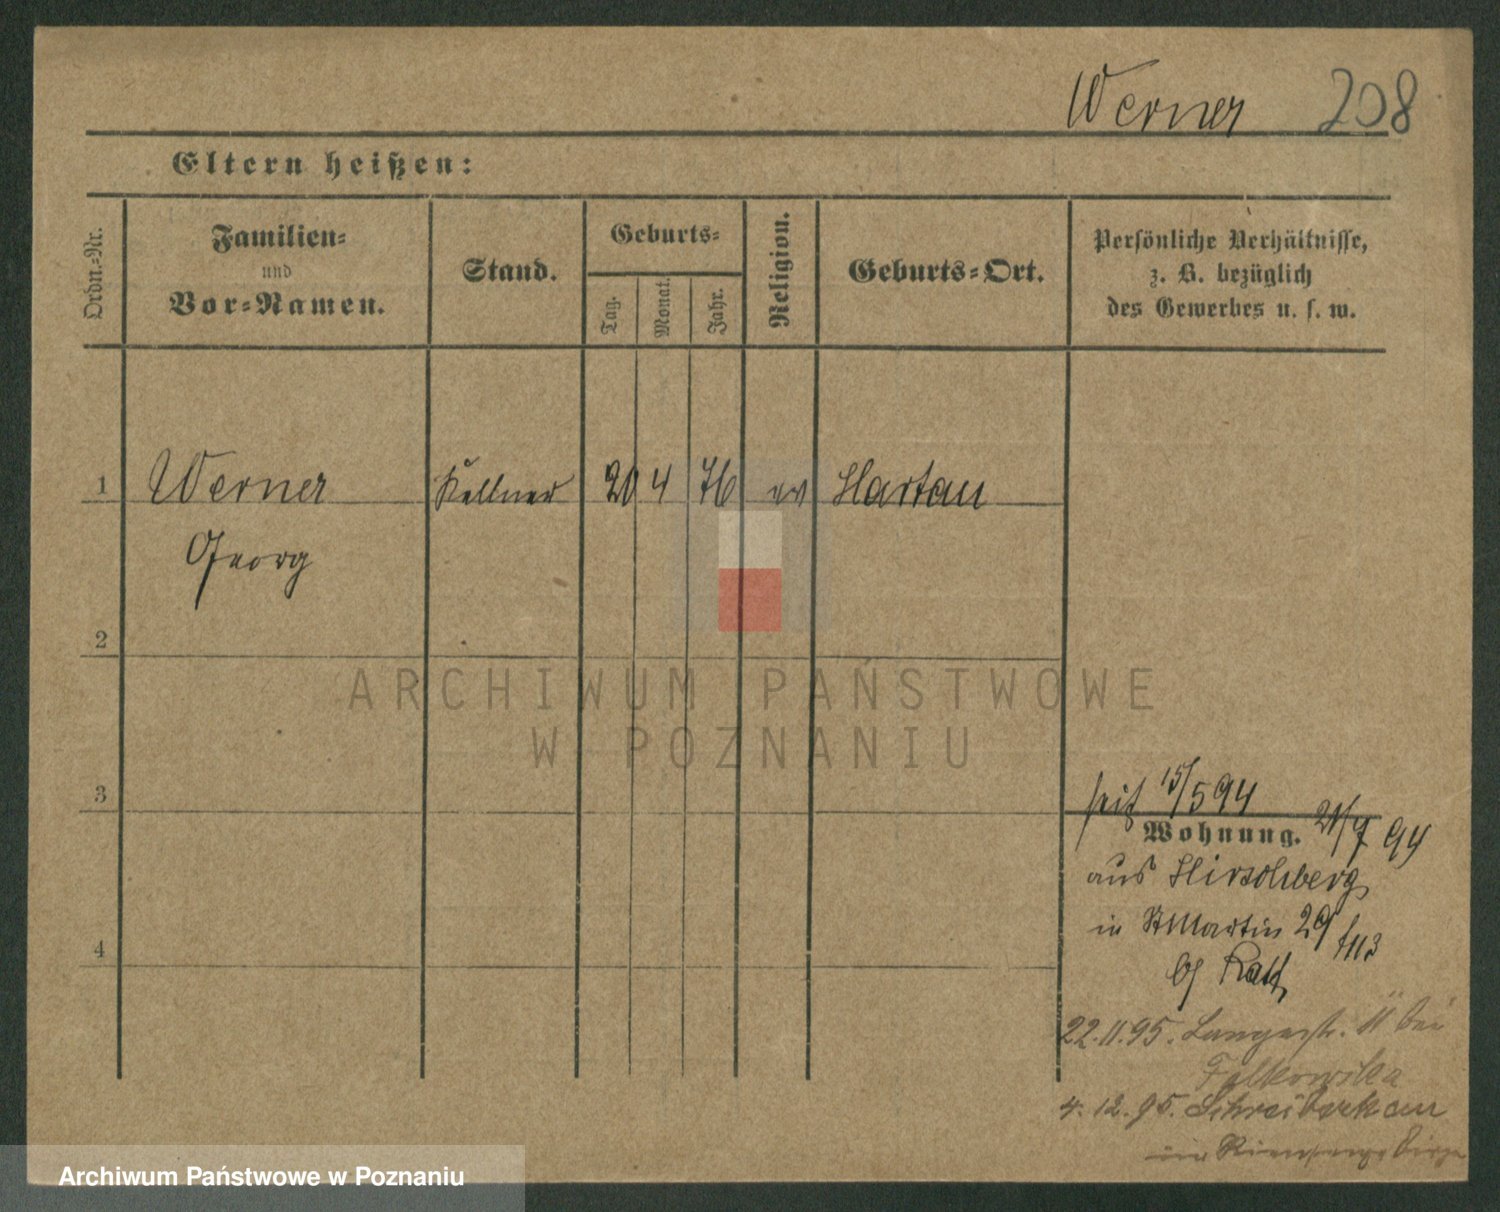 Werner 208
Eltern heißen:
Ordn.-Nr.
Familien-
und
Vor-Namen.
Stand.
Geburts-
Tag.
Monat.
Jahr.
Religion.
Geburts-Ort.
Persönliche Verhältnisse,
z. B. bezüglich
des Gewerbes u. s. w.
1 Werner Kellner 20 4 76 ev Hartau
Georg
2
3
4
seit 15/5 94
Wohnung. 21/7 94
aus Hirschberg
in St Martin 29
b/
22.11.95. Langestr. 11 bei
Falkowska
4.12.95. Schreiberhau
im
ARCHIWUM PAŃSTWOWE
W POZNANIU
Archiwum Państwowe w Poznaniu